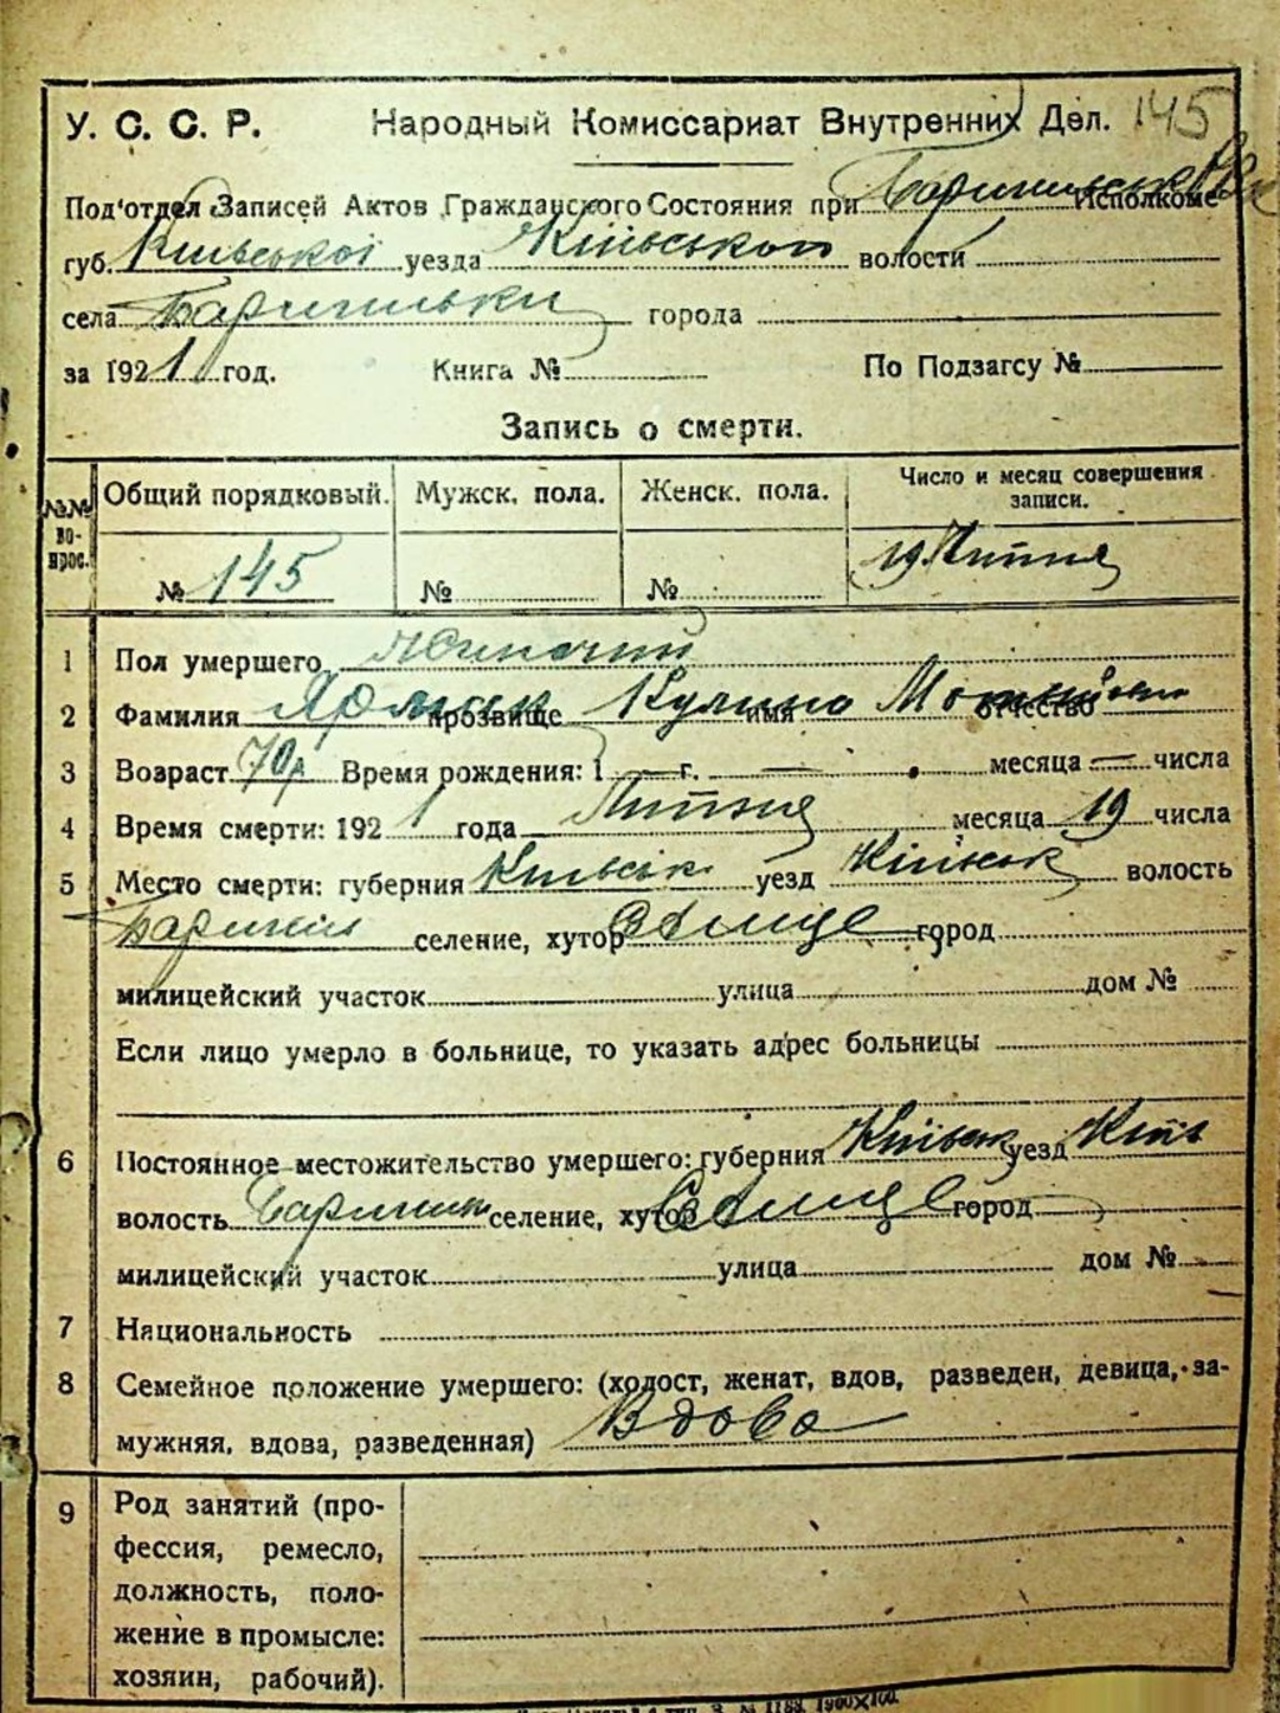 У. С. С. Р. Народный Комиссариат Внутренних Дел. 145
Под'отдел Записей Актов Гражданского Состояния при Исполкоме
губ. Київської уезда Київського волости
села города
за 1921 год. Книга № По Подзагсу №
Запись о смерти.
№№ во-прос. Общий порядковый. Мужск. пола. Женск. пола. Число и месяц совершения записи.
№ 145 № № 19 Липня
1 Пол умершего Жіночий
2 Фамилия прозвище Кулина имя отчество
3 Возраст 70р Время рождения: 1 — г. — месяца — числа
4 Время смерти: 1921 года Липня месяца 19 числа
5 Место смерти: губерния Київськ уезд Київськ волость
селение, хутор город
милицейский участок улица дом №
Если лицо умерло в больнице, то указать адрес больницы
6 Постоянное местожительство умершего: губерния Київськ уезд Київ
волость селение, хутор город
милицейский участок улица дом №
7 Национальность
8 Семейное положение умершего: (холост, женат, вдов, разведен, девица, за-
мужняя, вдова, разведенная) Вдова
9 Род занятий (про-
фессия, ремесло,
должность, поло-
жение в промысле:
хозяин, рабочий).